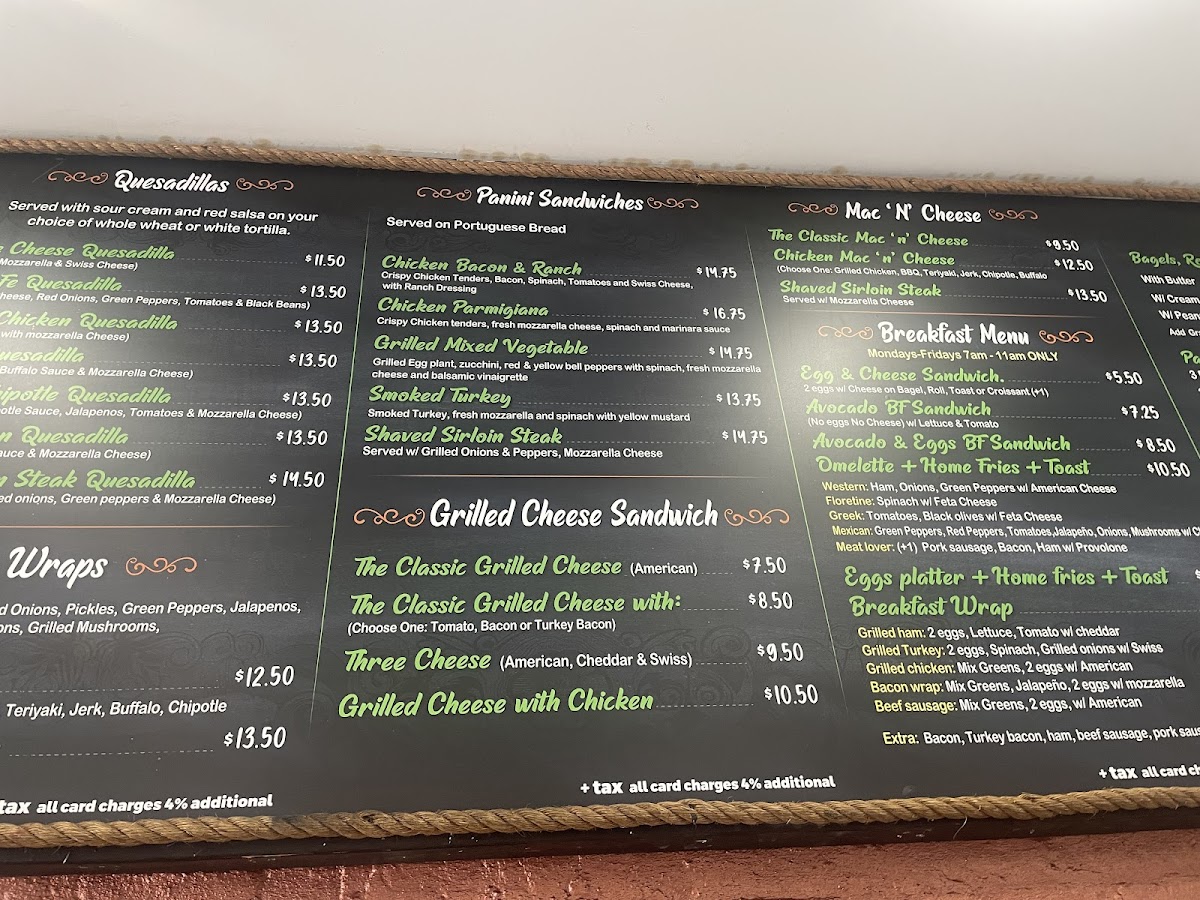 Quesadillas
Served with sour cream and red salsa on your
choice of whole wheat or white tortilla.
Cheese Quesadilla $11.50
Mozzarella & Swiss Cheese)
Fe Quesadilla $13.50
heese, Red Onions, Green Peppers, Tomatoes & Black Beans)
Chicken Quesadilla $13.50
with mozzarella Cheese)
uesadilla $13.50
Buffalo Sauce & Mozzarella Cheese)
ipotle Quesadilla $13.50
otle Sauce, Jalapenos, Tomatoes & Mozzarella Cheese)
n Quesadilla $13.50
auce & Mozzarella Cheese)
n Steak Quesadilla $14.50
ed onions, Green peppers & Mozzarella Cheese)
Wraps
d Onions, Pickles, Green Peppers, Jalapenos,
ons, Grilled Mushrooms,
$12.50
Teriyaki, Jerk, Buffalo, Chipotle
$13.50
tax all card charges 4% additional
Panini Sandwiches
Served on Portuguese Bread
Chicken Bacon & Ranch $14.75
Crispy Chicken Tenders, Bacon, Spinach, Tomatoes and Swiss Cheese,
with Ranch Dressing
Chicken Parmigiana $16.75
Crispy Chicken tenders, fresh mozzarella cheese, spinach and marinara sauce
Grilled Mixed Vegetable $14.75
Grilled Egg plant, zucchini, red & yellow bell peppers with spinach, fresh mozzarella
cheese and balsamic vinaigrette
Smoked Turkey $13.75
Smoked Turkey, fresh mozzarella and spinach with yellow mustard
Shaved Sirloin Steak $14.75
Served w/ Grilled Onions & Peppers, Mozzarella Cheese
Grilled Cheese Sandwich
The Classic Grilled Cheese (American) $7.50
The Classic Grilled Cheese with: $8.50
(Choose One: Tomato, Bacon or Turkey Bacon)
Three Cheese (American, Cheddar & Swiss) $9.50
Grilled Cheese with Chicken $10.50
+ tax all card charges 4% additional
Mac 'N' Cheese
The Classic Mac 'n' Cheese $9.50
Chicken Mac 'n' Cheese $12.50
(Choose One: Grilled Chicken, BBQ, Teriyaki, Jerk, Chipotle, Buffalo
Shaved Sirloin Steak $13.50
Served w/ Mozzarella Cheese
Breakfast Menu
Mondays-Fridays 7am - 11am ONLY
Egg & Cheese Sandwich. $5.50
2 eggs w/ Cheese on Bagel, Roll, Toast or Croissant (+1)
Avocado BF Sandwich $7.25
(No eggs No Cheese) w/ Lettuce & Tomato
Avocado & Eggs BF Sandwich $8.50
Omelette + Home Fries + Toast $10.50
Western: Ham, Onions, Green Peppers w/ American Cheese
Floretine: Spinach w/ Feta Cheese
Greek: Tomatoes, Black olives w/ Feta Cheese
Mexican: Green Peppers, Red Peppers, Tomatoes, Jalapeño, Onions, Mushrooms w/ C
Meat lover: (+1) Pork sausage, Bacon, Ham w/ Provolone
Eggs platter + Home fries + Toast $
Breakfast Wrap
Grilled ham: 2 eggs, Lettuce, Tomato w/ cheddar
Grilled Turkey: 2 eggs, Spinach, Grilled onions w/ Swiss
Grilled chicken: Mix Greens, 2 eggs w/ American
Bacon wrap: Mix Greens, Jalapeño, 2 eggs w/ mozzarella
Beef sausage: Mix Greens, 2 eggs, w/ American
Extra: Bacon, Turkey bacon, ham, beef sausage, pork saus
+ tax all card ch
Bagels, Ro
With Butter
W/ Cream
W/ Pean
Add Gr
Pa
3